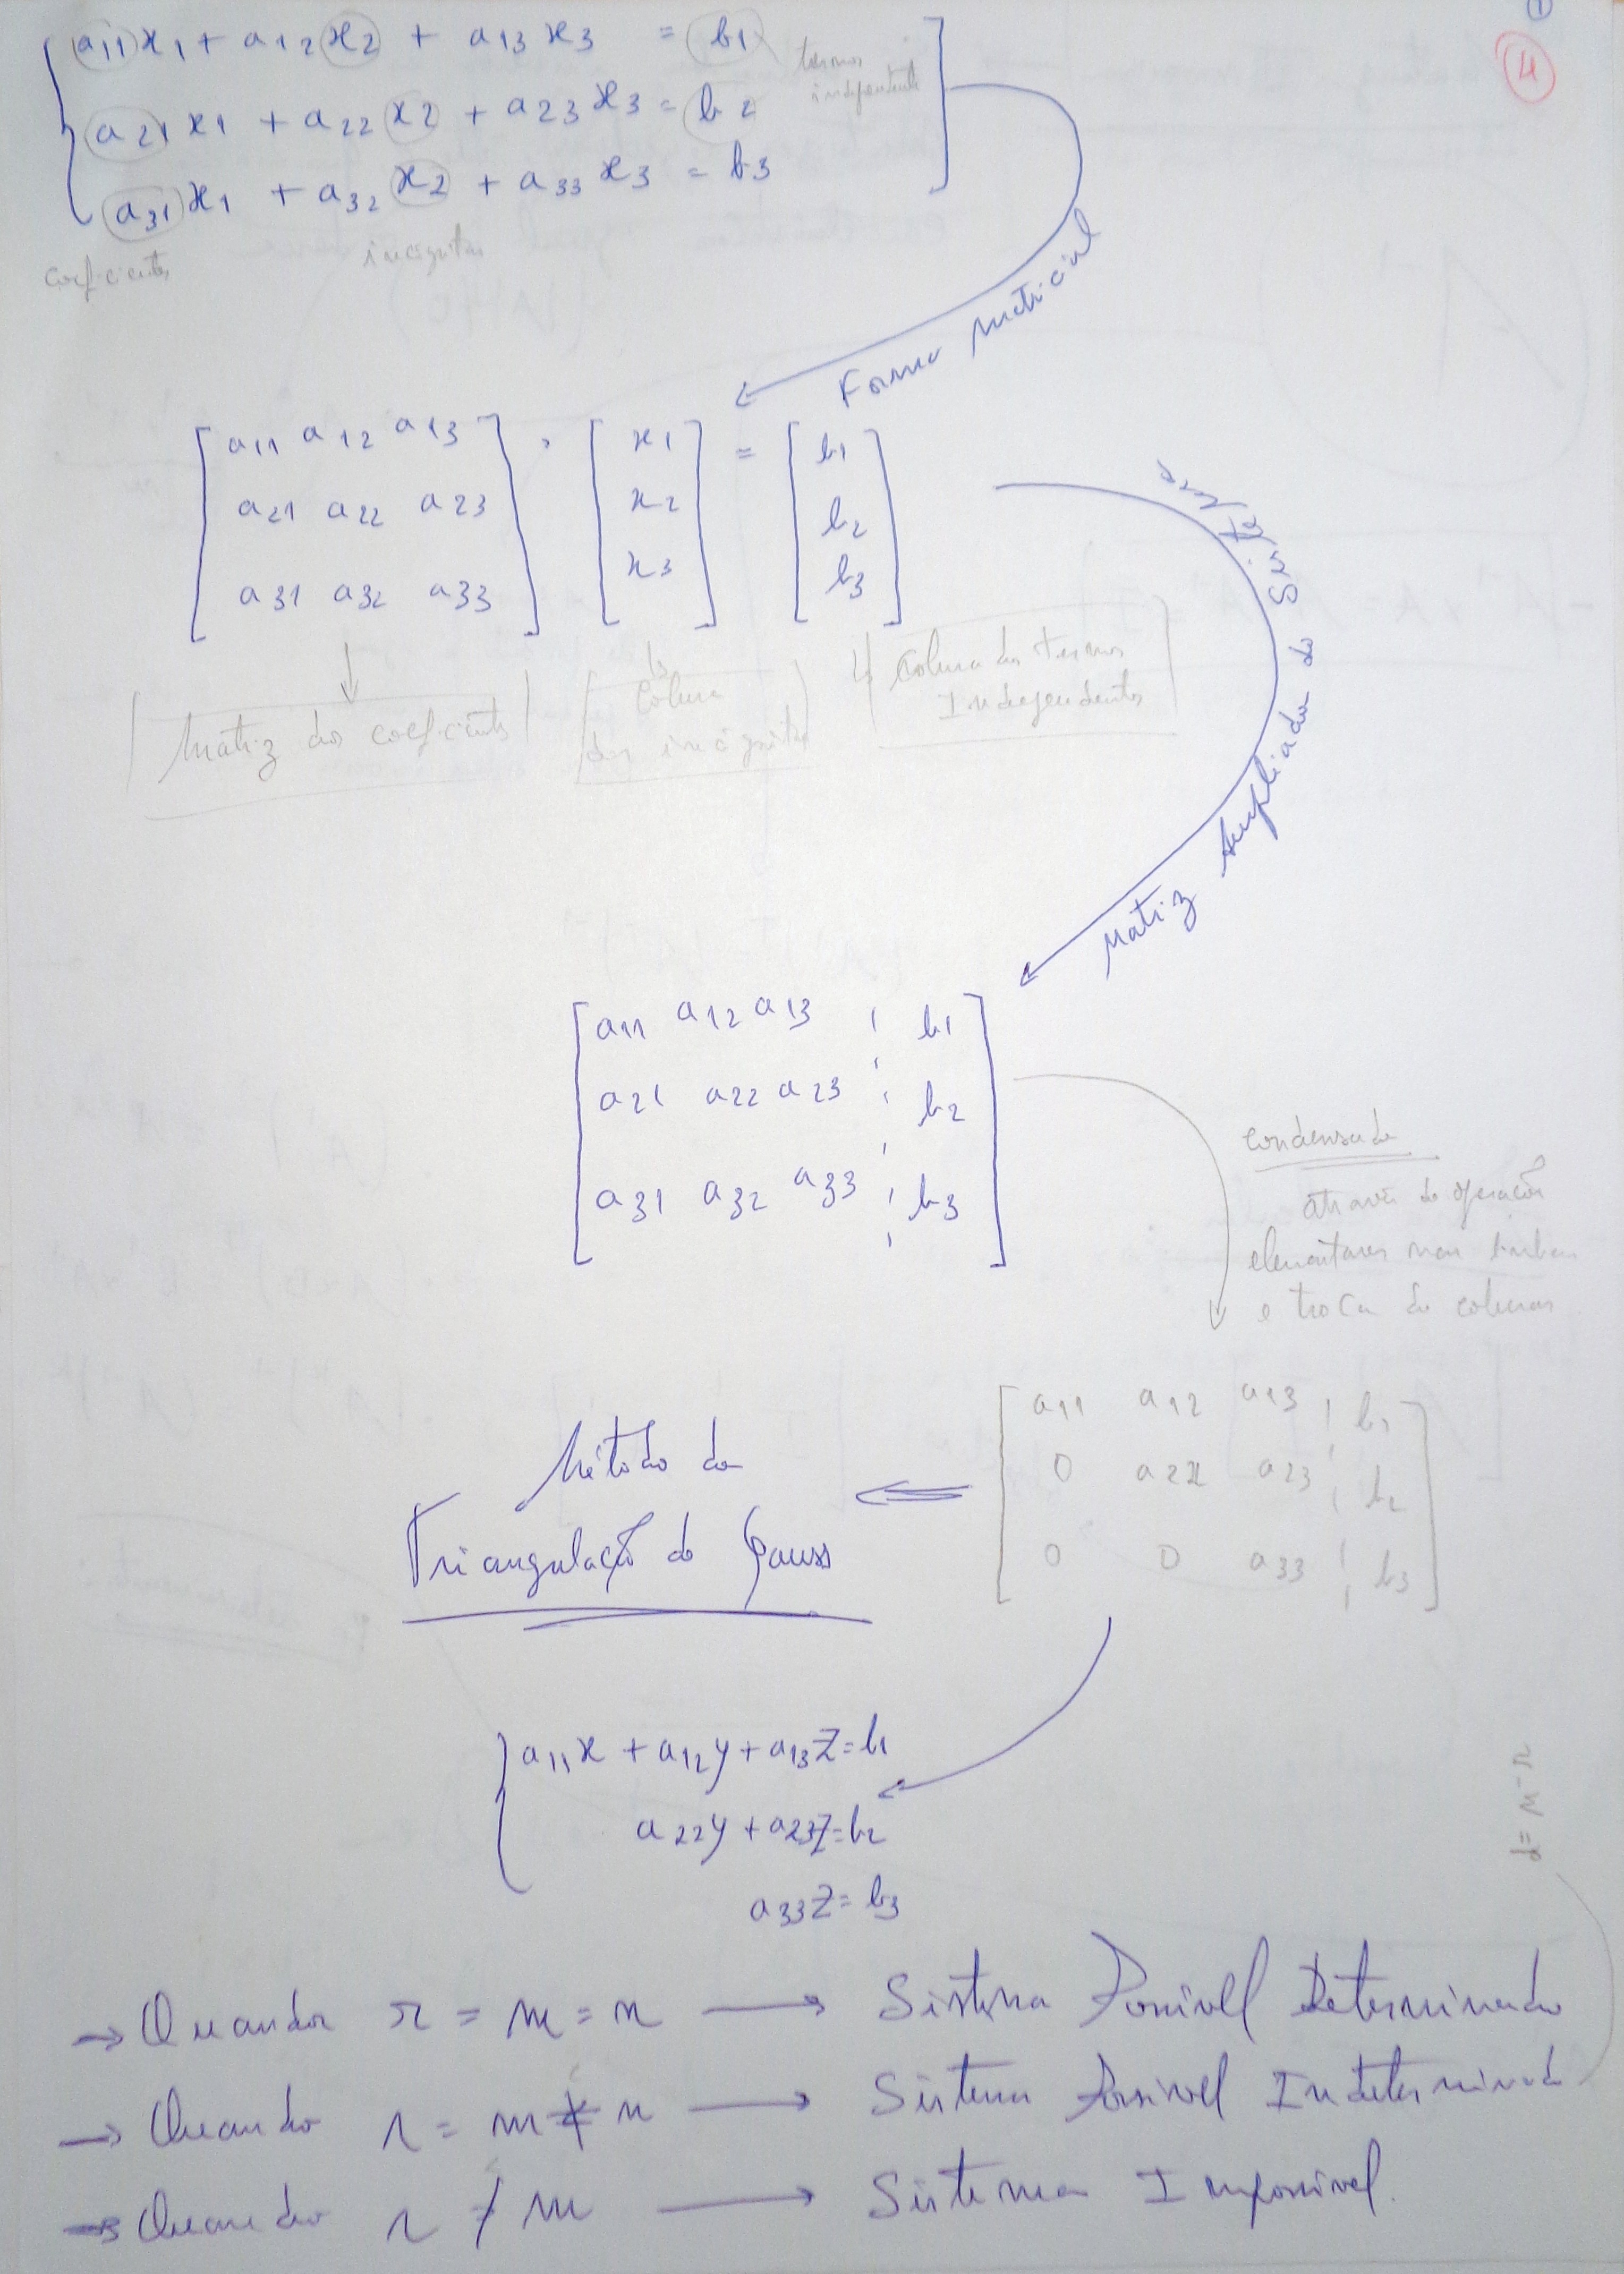 4
a11 x1 + a12 x2 + a13 x3 = b1
termos
independentes
a21 x1 + a22 x2 + a23 x3 = b2
a31 x1 + a32 x2 + a33 x3 = b3
coeficientes
incógnitas
Forma matricial
a11 a12 a13 . x1 = b1
a21 a22 a23 x2 b2
a31 a32 a33 x3 b3
Matriz dos coeficientes
Coluna
das incógnitas
Coluna dos termos
Independentes
Matriz Ampliada do Sistema
a11 a12 a13 ¦ b1
a21 a22 a23 ¦ b2
a31 a32 a33 ¦ b3
condensada
através de operações
elementares nas linhas
e troca de colunas
a11 a12 a13 ¦ b1
0 a22 a23 ¦ b2
0 0 a33 ¦ b3
Método da
Triangulação de Gauss
a11x + a12y + a13z = b1
a22y + a23z = b2
a33z = b3
d = n - r
→ Quando r = m = n → Sistema Possível Determinado
→ Quando r = m ≠ n → Sistema Possível Indeterminado
→ Quando r ≠ m → Sistema Impossível.